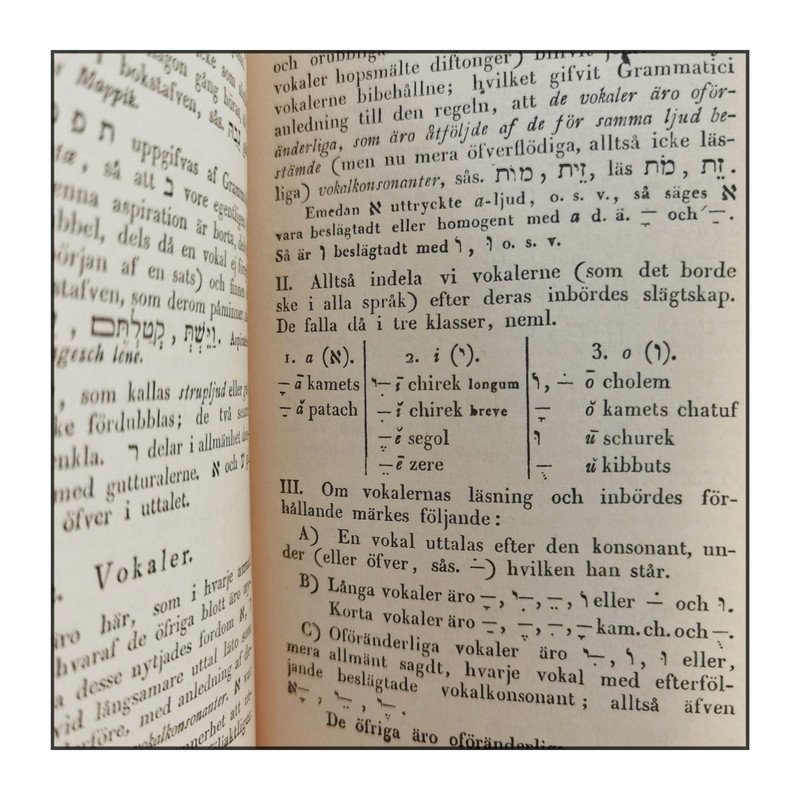 bokstafven, sås.
Mappik.
uppgifvas af
så att כ vore egentligen
aspiration är borta, dels
dels då en vokal ej
början af en sats) och finnes
stafven, som derom påminner,
som kallas strupljud eller
fördubblas; de två
ר delar i allmänhet
med gutturalerne. א och
öfver i uttalet.
Vokaler.
här, som i hvarje
hvaraf de öfriga blott äro
desse nytjades fordom א,
vid långsamare uttal läto
derföre, med anledning af
vokalkonsonanter.
och orubbliga
vokaler hopsmälte diftonger) blifvit
vokalerne bibehållne; hvilket gifvit Grammatici
anledning till den regeln, att de vokaler äro oför-
änderliga, som äro åtföljde af de för samma ljud be-
stämde (men nu mera öfverflödiga, alltså icke läs-
liga) vokalkonsonanter, sås. läs
Emedan א uttryckte a-ljud, o. s. v., så säges א
vara beslägtadt eller homogent med a d. ä. ־ָ och ־ַ.
Så är ו beslägtadt med וֹ, וּ o. s. v.
II. Alltså indela vi vokalerne (som det borde
ske i alla språk) efter deras inbördes slägtskap.
De falla då i tre klasser, neml.
1. a (א). 2. i (י). 3. o (ו).
־ָ ā kamets ־ִי ī chirek longum וֹ, ־ֹ ō cholem
־ַ ă patach ־ִ ĭ chirek breve ־ָ ŏ kamets chatuf
־ֶ ĕ segol וּ ū schurek
־ֵ ē zere ־ֻ ŭ kibbuts
III. Om vokalernas läsning och inbördes för-
hållande märkes följande:
A) En vokal uttalas efter den konsonant, un-
der (eller öfver, sås. ־ֹ) hvilken han står.
B) Långa vokaler äro ־ָ, ־ִי, ־ֵ, וֹ eller ־ֹ och וּ.
Korta vokaler äro ־ַ, ־ֶ, ־ִ, ־ָ kam. ch. och ־ֻ.
C) Oföränderliga vokaler äro ־ִי, וֹ, וּ eller,
mera allmänt sagdt, hvarje vokal med efterföl-
jande beslägtade vokalkonsonant; alltså äfven
De öfriga äro oföränderliga